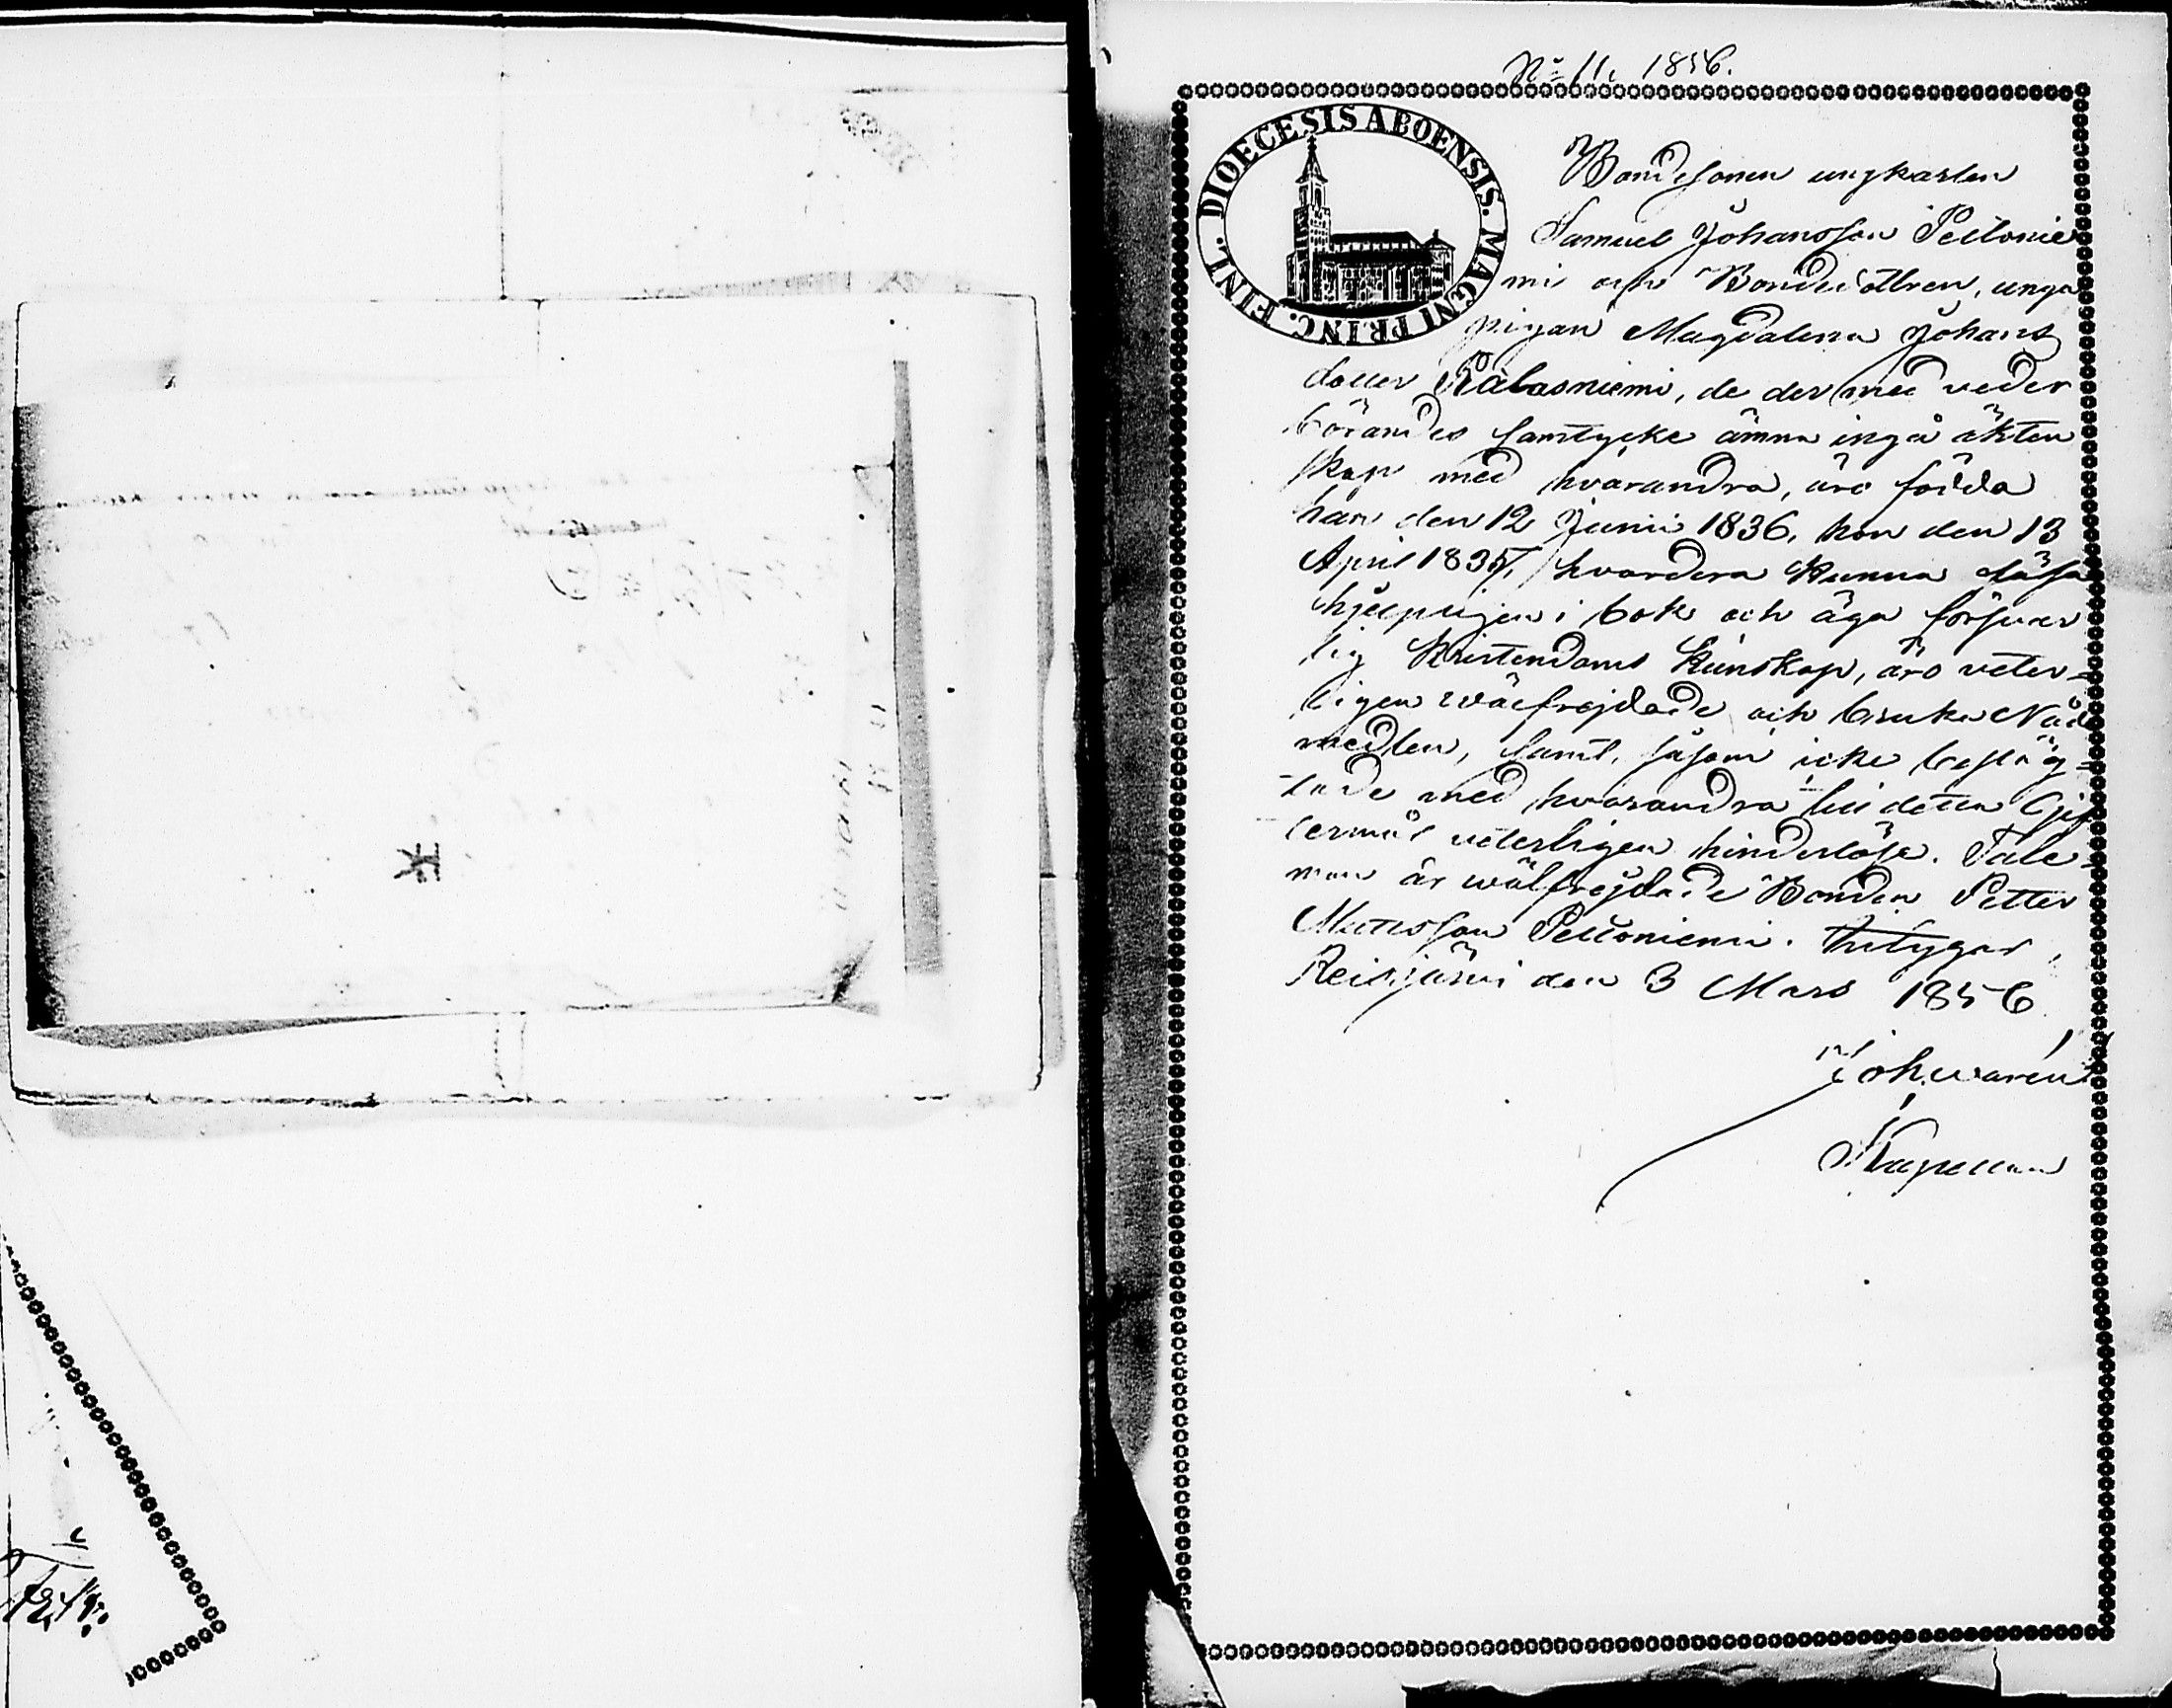 No 11. 1856.
DIOECESIS ABOENSIS. MAGNI PRINC. FINL.
Bondesonen ungkarlen
Samuel Johansson Peltonie
mi och Bondedottren, unga
pigan Magdalena Johans
dotter Kalasniemi, de der med veder
börandes samtycke ämna ingå äkten
skap med hvarandra, äro födda
han den 12 Junii 1836, hon den 13
April 1835, hvardera kunna läsa
hjelpligen i bok och äga försvar
lig Kristendoms kunskap, äro veter-
ligen wälfrejdade och bruka Nåde
medlen, samt, såsom icke besläg-
tade med hvarandra till detta Gif
termål veterligen hinderlöse. Tale-
man är wälfrejdade Bonden Petter
Mattsson Peltoniemi. Intygar,
Reisjärvi den 3 Mars 1856
Joh. Warén
Kapellan